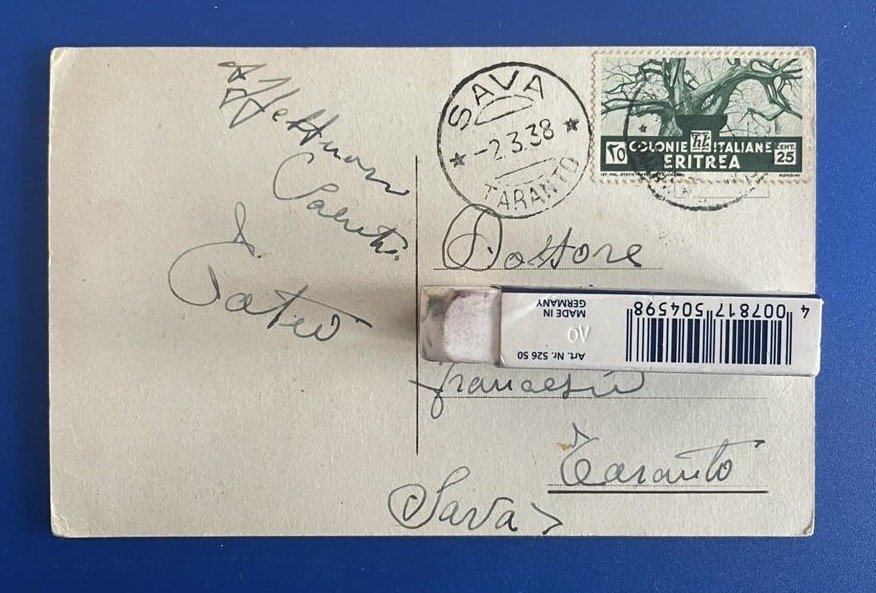 Affettuosi
Saluti
SAVA
-2.3.38
TARANTO
COLONIE ITALIANE
ERITREA
CENT.
25
Dottore
4 007817 504598
MADE IN
GERMANY
Art. Nr. 526 50
Francesco
Taranto
(Sava)